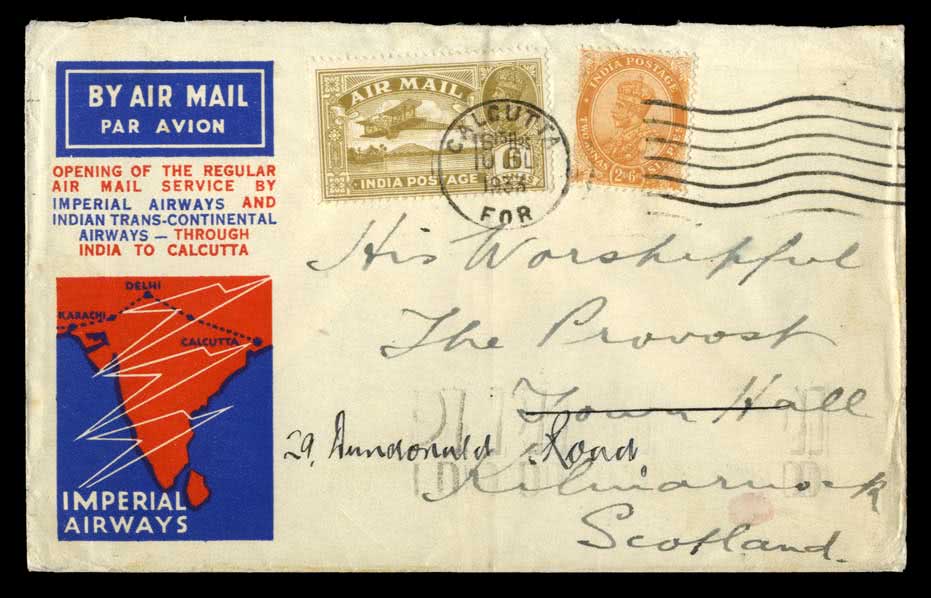 BY AIR MAIL
PAR AVION
OPENING OF THE REGULAR
AIR MAIL SERVICE BY
IMPERIAL AIRWAYS AND
INDIAN TRANS-CONTINENTAL
AIRWAYS — THROUGH
INDIA TO CALCUTTA
DELHI
KARACHI
CALCUTTA
IMPERIAL
AIRWAYS
AIR MAIL
INDIA POSTAGE
INDIA POSTAGE
2As6P
CALCUTTA
1933
FOR
His Worshipful
The Provost
Town Hall
29, Dundonald Road
Kilmarnock
Scotland.